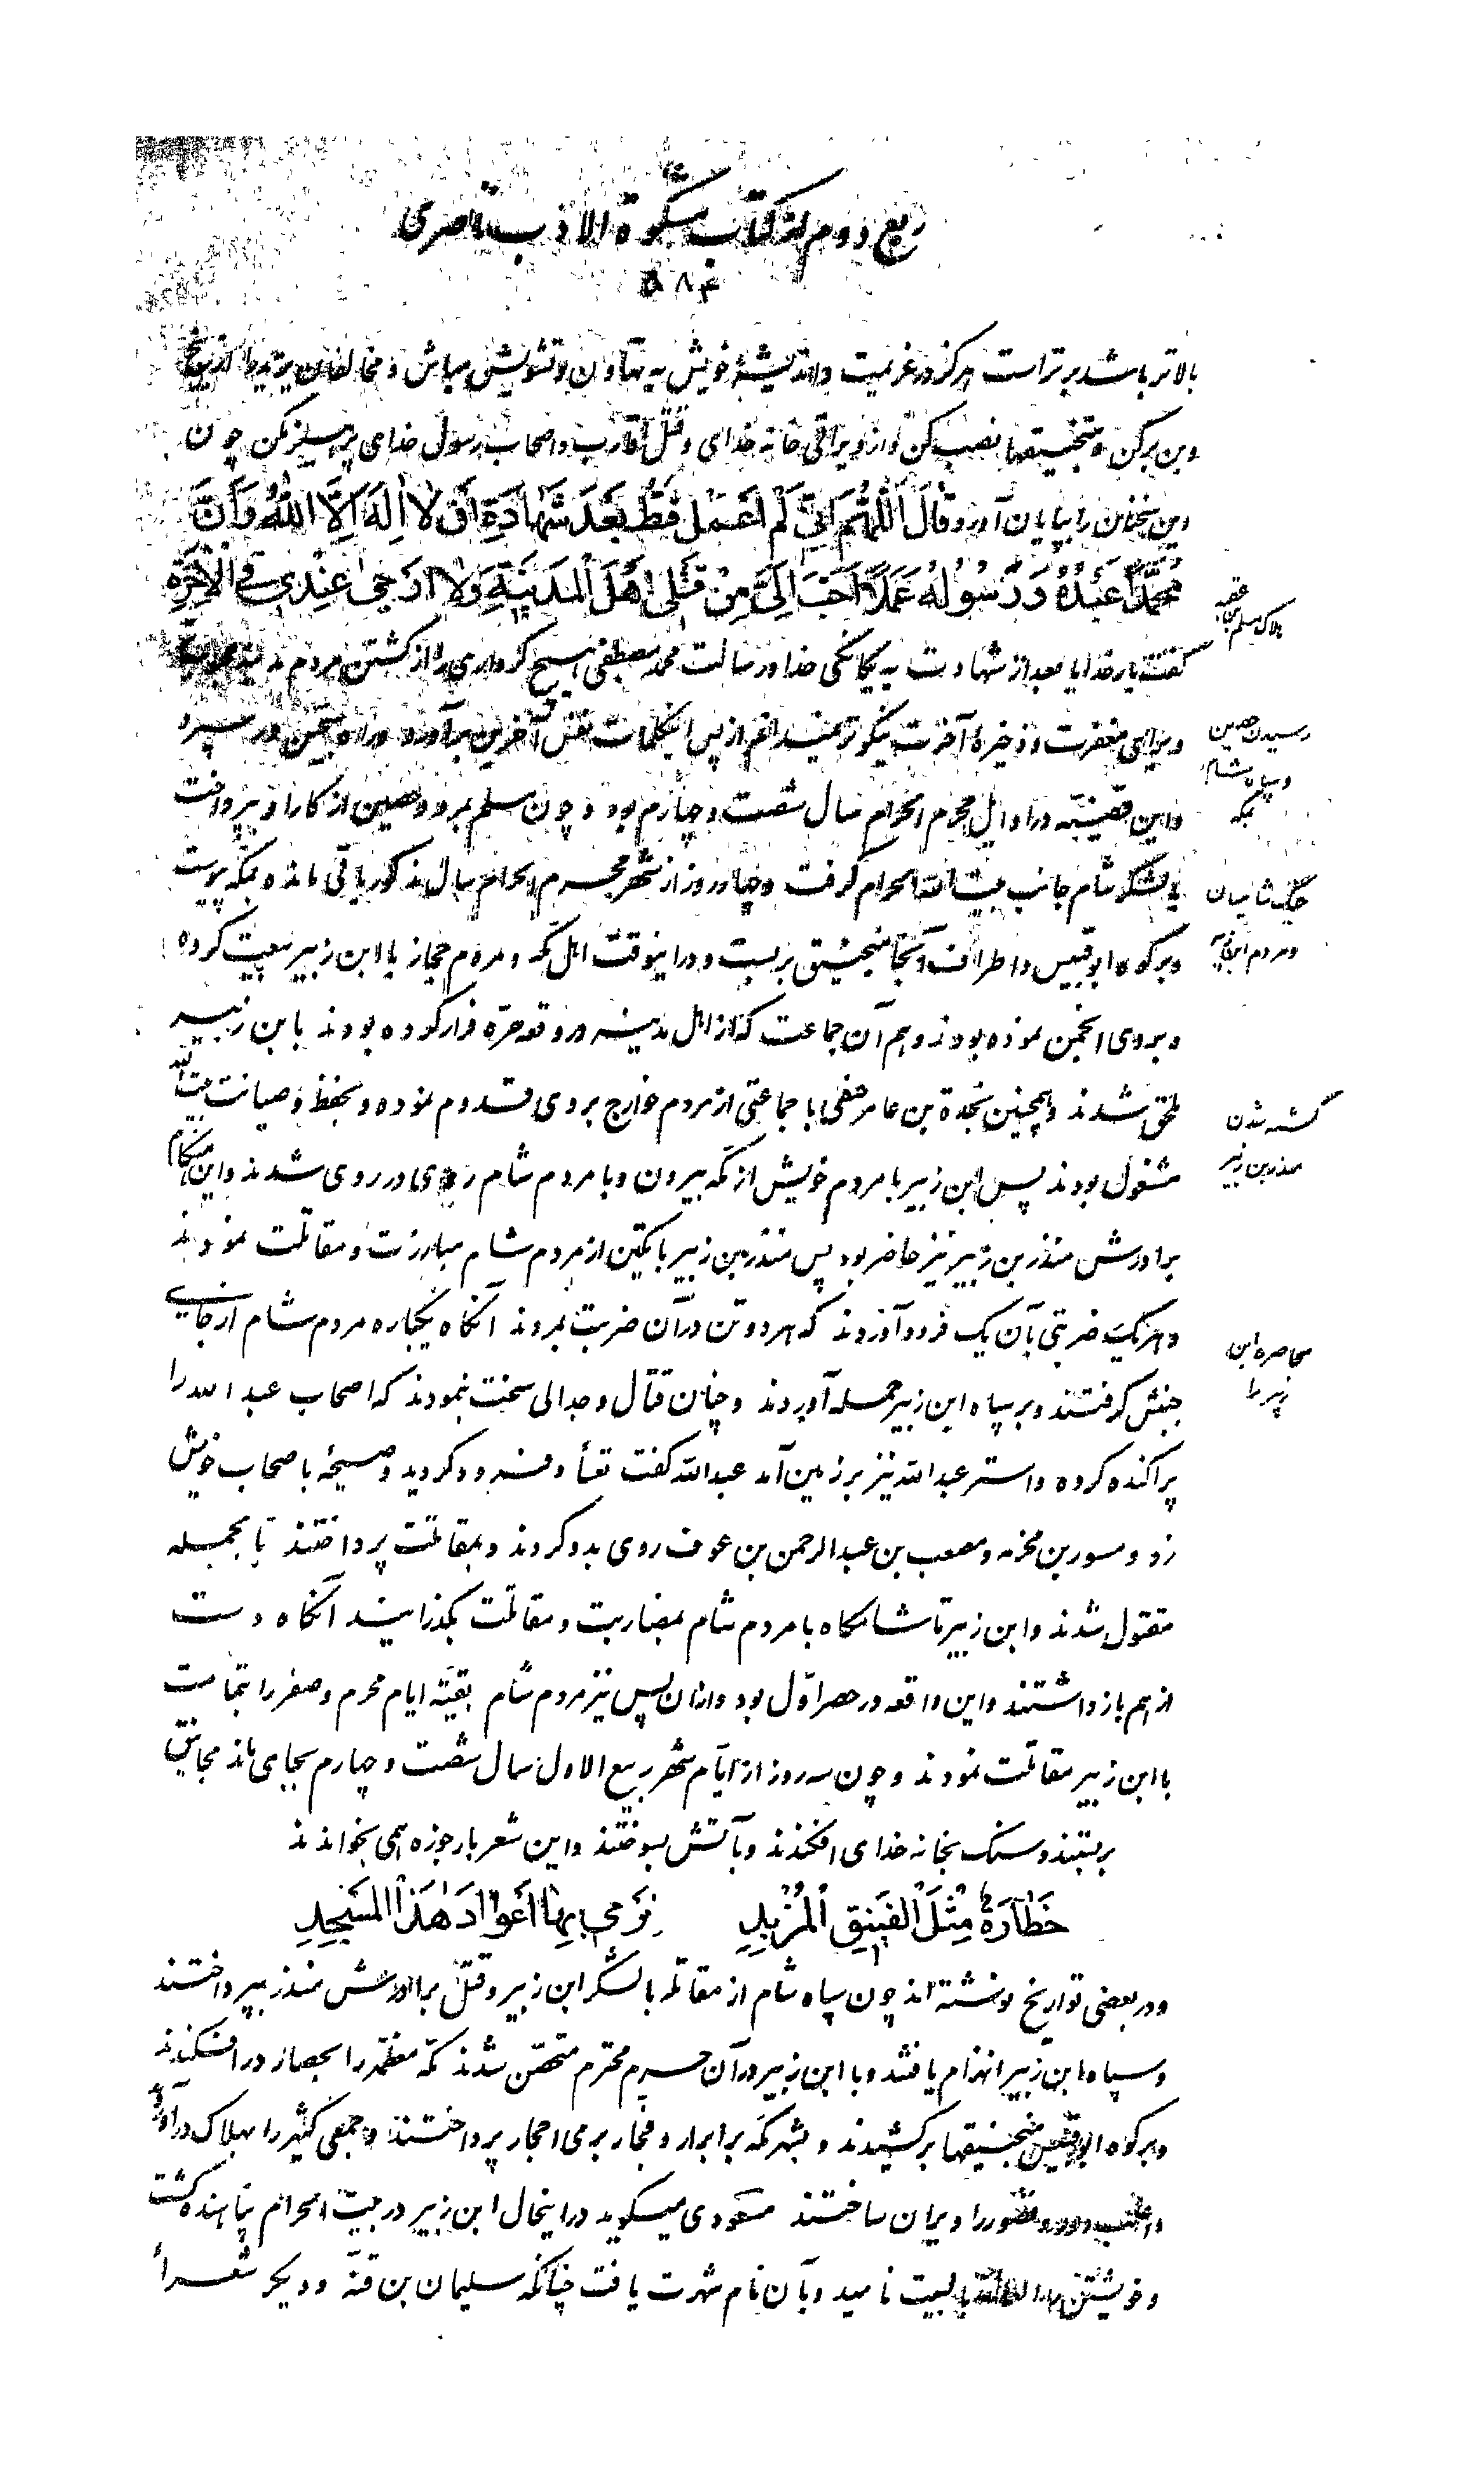 ربع دوم از کتاب مشکوة الادب ناصری
۵۸۴
بالاتر باشد برتر است هرگز در عزیمت و اندیشهٔ خویش به تهاون و تشویش مباش و مخالفان یزید را از بیخ
و بن برکن و منجنیقها نصب کن و از ویرانی خانه خدای و قتل اقارب و اصحاب رسول خدای پرهیز مکن چون
این سخنان را بپایان آورد و قال اَللّهُمَّ اِنّی لَم اَعمَل قَطُّ بَعدَ شَهادَةِ اَن لا اِلهَ اِلَّا اللهُ وَ اَنَّ
مُحَمَّداً عَبدُهُ وَ رَسُولُهُ عَمَلاً اَحَبَّ اِلَیَّ مِن قَتلی اَهلَ المَدینَةِ وَلا اَرجی عِندی فِی الاخِرَةِ
گفت بار خدایا بعد از شهادت به یگانگی خدا و رسالت محمد مصطفی هیچ کرداری را از کشتن مردم مدینه
و برای مغفرت و ذخیرهٔ آخرت نیکوتر نمیدانم از پس این کلمات نفس آخرین برآورد و راه سجین در سپرد
و این قضیه در اوایل محرم الحرام سال شصت و چهارم بود و چون مسلم بمرد و حصین از کار او بپرداخت
با لشکر شام جانب بیت الله الحرام گرفت و چهار روز از شهر محرم الحرام سال مذکور باقی مانده بمکه پیوست
و بر کوه ابو قبیس و اطراف آنجا منجنیق بر بست و در اینوقت اهل مکه و مردم حجاز با ابن زبیر بیعت کرده
و بروی انجمن نموده بودند و هم آن جماعت که از اهل مدینه در وقعه حرّه فرار کرده بودند با بن زبیر
ملحق شدند و همچنین نجدة بن عامر حنفی با جماعتی از مردم خوارج بروی قدوم نموده و بحفظ و صیانت بیت الله
مشغول بودند پس ابن زبیر با مردم خویش از مکه بیرون و با مردم شام روی در روی شدند و این هنگام
برادرش منذر بن زبیر نیز حاضر بود پس منذر بن زبیر با یکتن از مردم شام مبارزت و مقاتلت نمودند
و هر یک ضربتی بآن یک فرود آوردند که هر دو تن در آن ضربت بمردند آنگاه یکباره مردم شام از جای
جنبش گرفتند و بر سپاه ابن زبیر حمله آوردند و چنان قتال و جدالی سخت بنمودند که اصحاب عبد الله را
پراکنده کرده و استر عبدالله نیز بر زمین آمد عبدالله گفت تعساً و فرود گردید و صیحهٔ با صحاب خویش
زد و مسور بن مخرمه و مصعب بن عبدالرحمن بن عوف روی بدو کردند و بمقاتلت پرداختند تا بجمله
مقتول شدند و ابن زبیر تا شامگاه با مردم شام بمضاربت و مقاتلت بگذرانید آنگاه دست
از هم باز داشتند و این واقعه در حصر اوّل بود و ازان پس نیز مردم شام بقیّه ایام محرم و صفر را بتمامت
با ابن زبیر مقاتلت نمودند و چون سه روز از ایّام شهر ربیع الاول سال شصت و چهارم بجای ماند مجانیق
بر بستند و سنگ بخانه خدای افکندند و بآتش بسوختند و این شعر بارجوزه همی بخواندند
خَطّارَةٌ مِثلَ الفَنیقِ المُزبِدِ نَرمی بِها اَعوادَ هَذَا المَسجِدِ
و در بعضی تواریخ نوشته اند چون سپاه شام از مقاتله با لشکر ابن زبیر و قتل برادرش منذر بپرداختند
و سپاه ابن زبیر انهزام یافتند و با ابن زبیر در آن حرم محترم متحصّن شدند مکّه معظّمه را بحصار در افکندند
و بر کوه ابو قبیس منجنیقها برکشیدند و بشهر مکه بر ابرار و فجار برمی احجار پرداختند و جمعی کثیر را بهلاک درآوردند
و دور و قصور را ویران ساختند مسعودی میگوید در اینحال ابن زبیر در بیت الحرام پناهنده گشت
و خویشتن را العائذ بالبیت نامید و بآن نام شهرت یافت چنانکه سلیمان بن قتّه و دیگر شعراً
هلاک مسلم بن عقبه
رسیدن حصین
و سپاه شام
بمکه
جنگ شامیان
و مردم ابن زبیر
کشته شدن
منذر بن زبیر
محاصره ابن
زبیر را